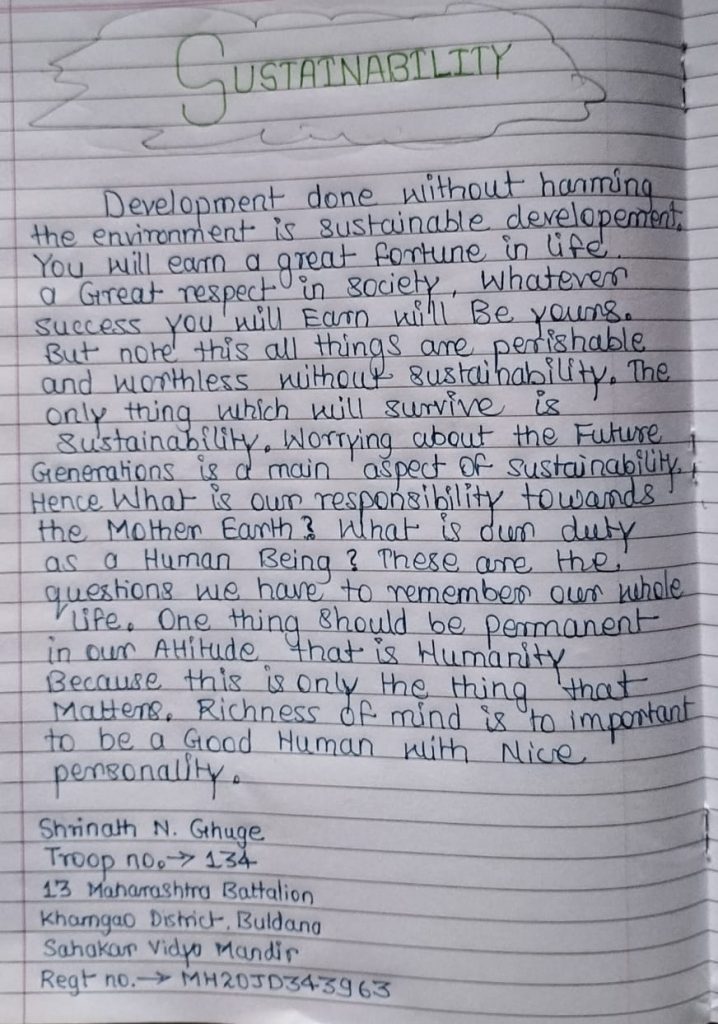 SUSTAINABILITY
Development done without harming
the environment is sustainable developement.
You will earn a great fortune in life.
a Great respect in society, Whatever
success you will Earn will Be yours.
But note this all things are perishable
and worthless without sustainability. The
only thing which will survive is
sustainability. Worrying about the Future
Generations is a main aspect of sustainability.
Hence What is our responsibility towards
the Mother Earth? What is our duty
as a Human Being? These are the
questions we have to remember our whole
life. One thing should be permanent
in our Attitude that is Humanity
Because this is only the thing that
Matters. Richness of mind is to important
to be a Good Human with Nice
personality.
Shrinath N. Ghuge
Troop no. → 134
13 Maharashtra Battalion
Khamgao District. Buldana
Sahakar Vidya Mandir
Regt no. → MH20JD343963